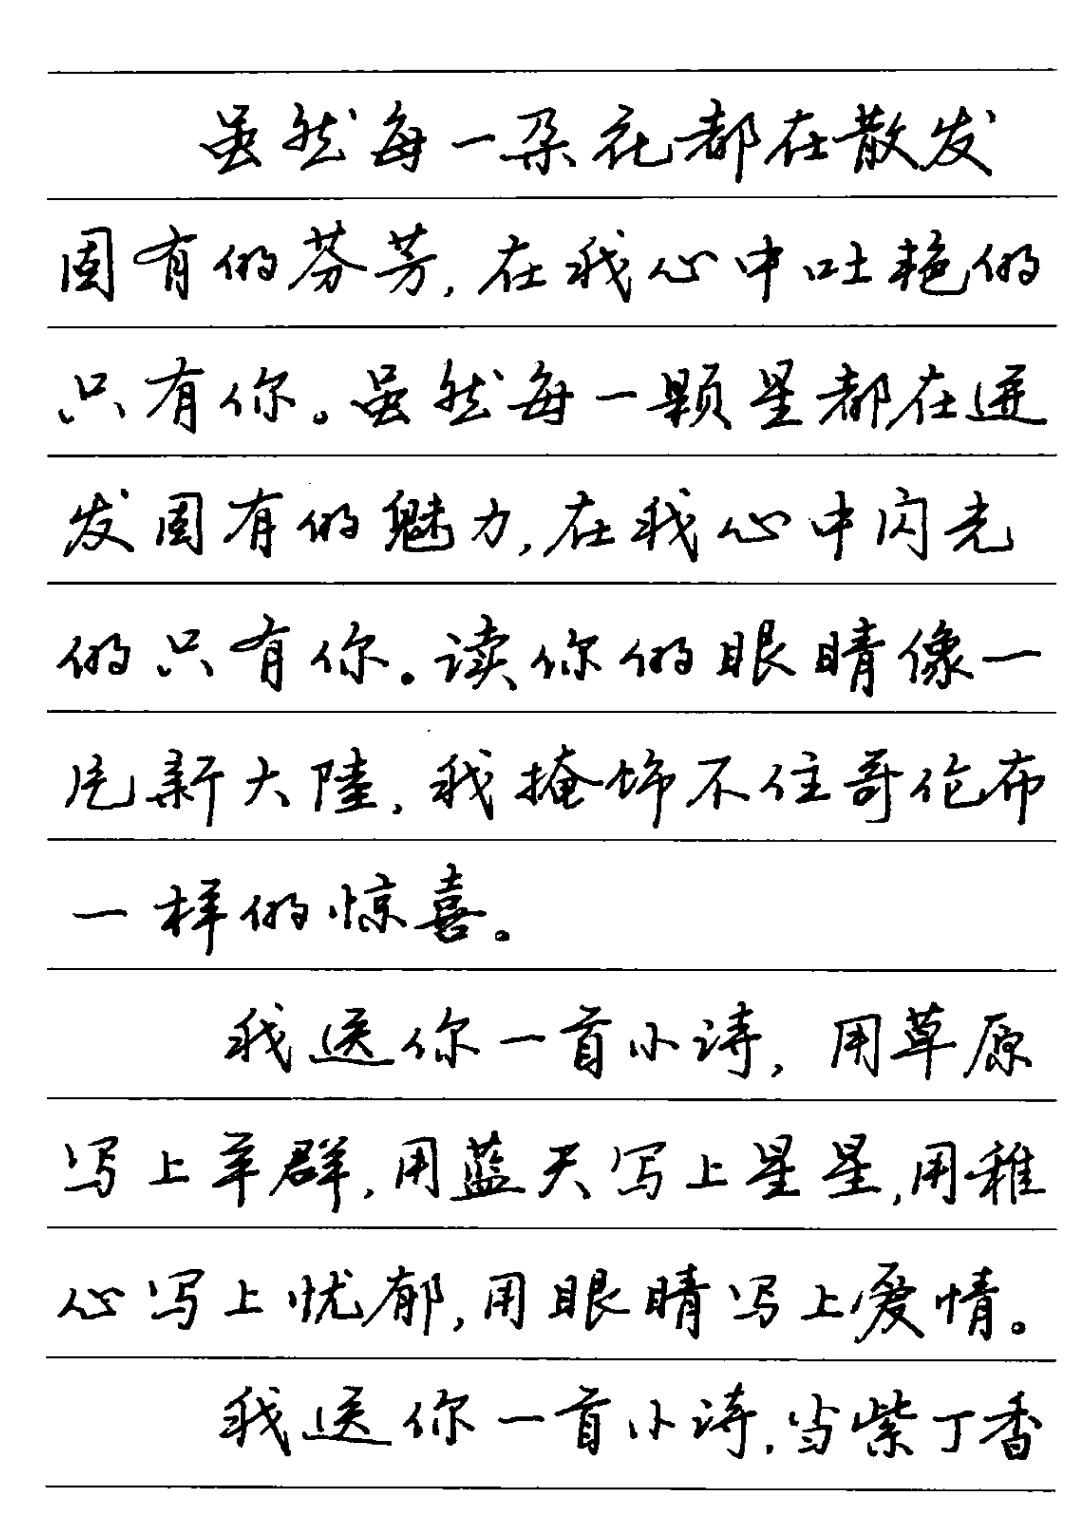 虽然每一朵花都在散发
固有的芬芳,在我心中吐艳的
只有你。虽然每一颗星都在迸
发固有的魅力,在我心中闪光
的只有你。读你的眼睛像一
片新大陸,我掩饰不住哥伦布
一样的惊喜。
我送你一首小诗,用草原
写上羊群,用蓝天写上星星,用稚
心写上忧郁,用眼睛写上爱情。
我送你一首小诗,当紫丁香